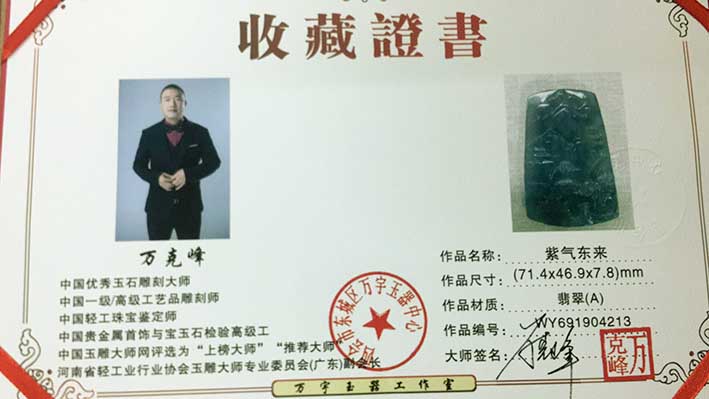 收藏證書
万克峰
中国优秀玉石雕刻大师
中国一级/高级工艺品雕刻师
中国轻工珠宝鉴定师
中国贵金属首饰与宝玉石检验高级工
中国玉雕大师网评选为“上榜大师”“推荐大师”
河南省轻工业行业协会玉雕大师专业委员会(广东)副会长
四会市东城区万字玉器中心
作品名称: 紫气东来
作品尺寸: (71.4x46.9x7.8)mm
作品材质: 翡翠(A)
作品编号: WY691904213
大师签名:
万克峰
万字玉器工作室